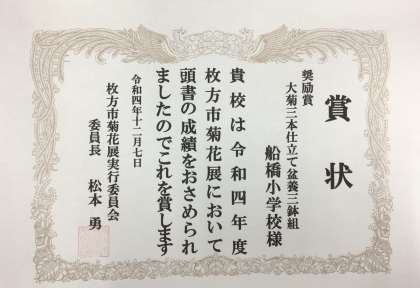 賞状
奨励賞
大菊三本仕立て盆養三鉢組
船橋小学校様
貴校は令和四年度
枚方市菊花展において
頭書の成績をおさめられ
ましたのでこれを賞します
令和四年十二月七日
枚方市菊花展実行委員会
委員長 松本 勇